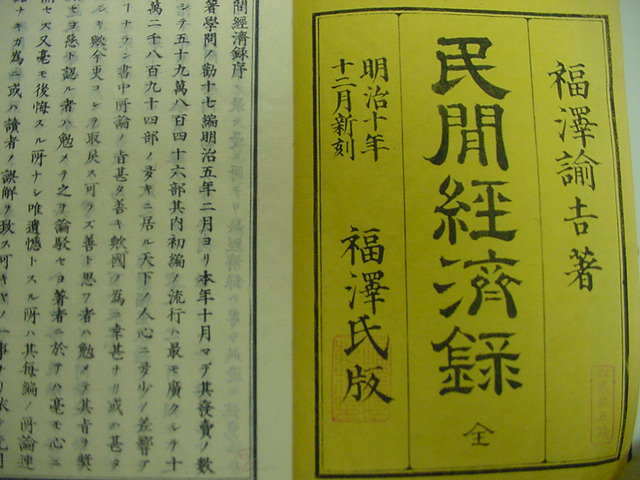 福澤諭吉著
民間經濟録 全
明治十年
十二月新刻
福澤氏版
間經濟録序
著學問ノ勸十七編明治五年二月ヨリ本年十月マデ其發賣ノ數
シテ五十九萬八百四十六部其内初編ノ流行ハ最モ廣クシテ十
萬二千八百九十四部ノ多キニ居ル天下ノ人心ニ多少ノ差響ア
ナラン書中所論ノ旨甚タ善キ歟國ノ爲ニ幸甚ナリ或ハ甚タ
シキ歟今更コレヲ取戻ス可ラズ善ト思フ者ハ勉メテ其旨ヲ奬
セヨ惡ト認ル者ハ勉メテ之ヲ論駁セヨ著者ニ於テハ毫モ心ニ
セス又毫モ後悔スル所ナシ唯遺憾トスル所ハ其毎編ノ所論連
ナキガ爲ニ或ハ讀者ノ誤解ヲ致ス可キヤノ一事ナリ依